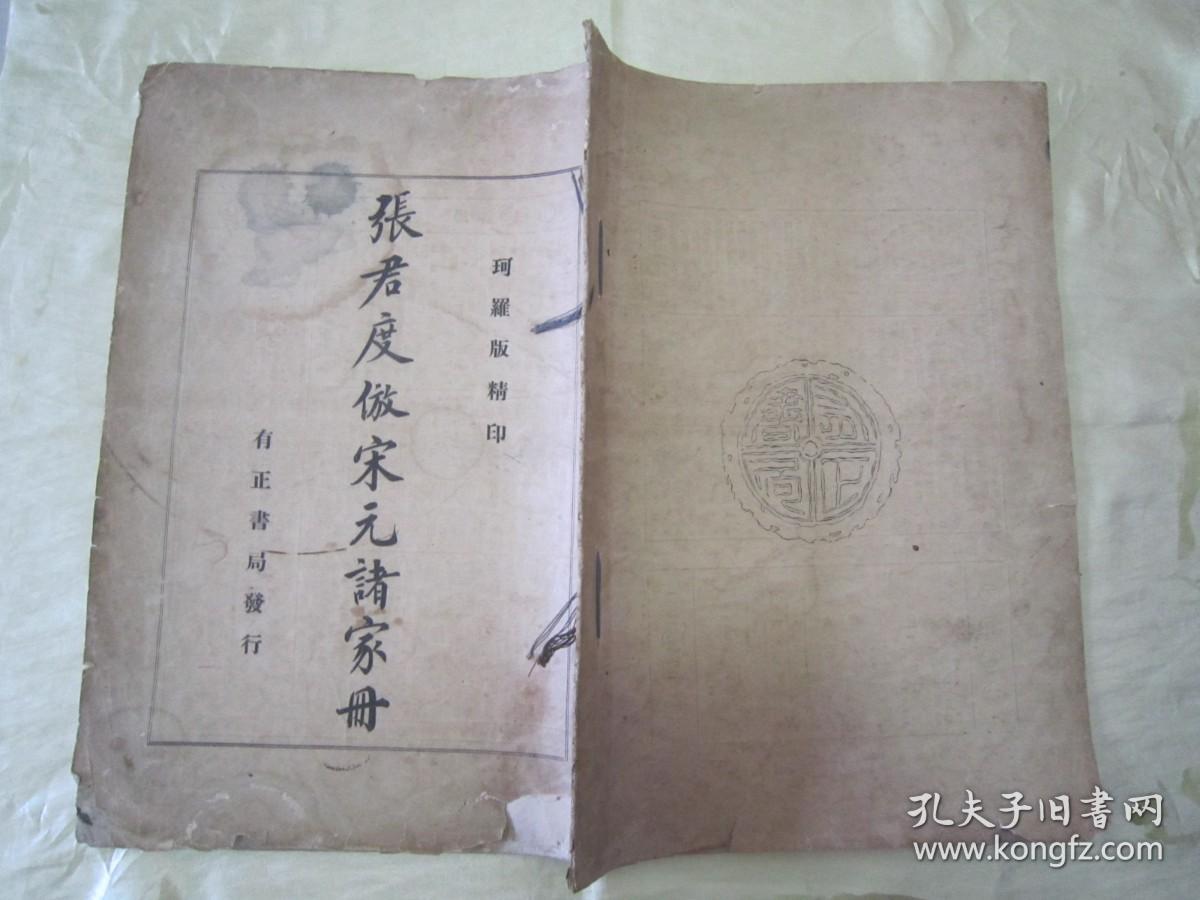 珂羅版精印
張君度倣宋元諸家冊
有正書局發行
有正書局
孔夫子旧书网
www.kongfz.com